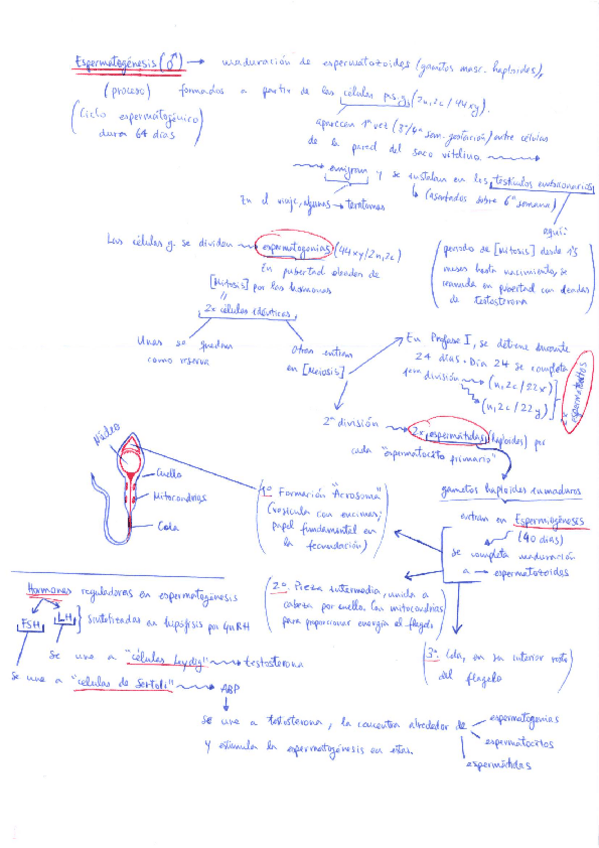 Espermatogénesis (♂) → maduración de espermatozoides (gametos masc. haploides),
(proceso) formados a partir de las células p.s.g. (2n, 2c / 44xy).
(Ciclo espermatogénico
dura 64 días)
aparecen 1ª vez (3ª/4ª sem. gestación) entre células
de la pared del saco vitelino.
emigran y se instalan en los testículos embrionarios
(asentados sobre 6ª semana)
En el viaje, algunas → teratomas
aquí:
(periodo de [Mitosis] desde 1's
meses hasta nacimiento, se
reanuda en pubertad con oleadas
de testosterona)
Las células g. se dividen → espermatogonias (44xy/2n, 2c)
En pubertad oleadas de
[Mitosis] por las hormonas
"
2x células idénticas
Unas se quedan
como reserva
Otras entran
en [Meiosis]
En Profase I, se detiene durante
24 días. Día 24 se completa
1era división → (n, 2c / 22x)
(n, 2c / 22y)
2x espermatocitos
2ª división
2x espermátidas (haploides) por
cada "espermatocito primario"
gametos haploides inmaduros
entran en Espermiogénesis
(40 días)
se completa maduración
a → espermatozoides
Núcleo
Cuello
Mitocondrias
Cola
1º Formación "Acrosoma"
(vesícula con enzimas;
papel fundamental en
la fecundación)
2º. Pieza intermedia, unida a
cabeza por cuello. Con mitocondrias
para proporcionar energía al flagelo
3º. Cola, en su interior resto
del flagelo
Hormonas reguladoras en espermatogénesis
FSH LH } sintetizadas en hipófisis por GnRH
Se une a "células Leydig" → testosterona
Se une a "células de Sertoli" → ABP
Se une a testosterona, la concentra alrededor de
espermatogonias
espermatocitos
espermátidas
y estimula la espermatogénesis en estas.